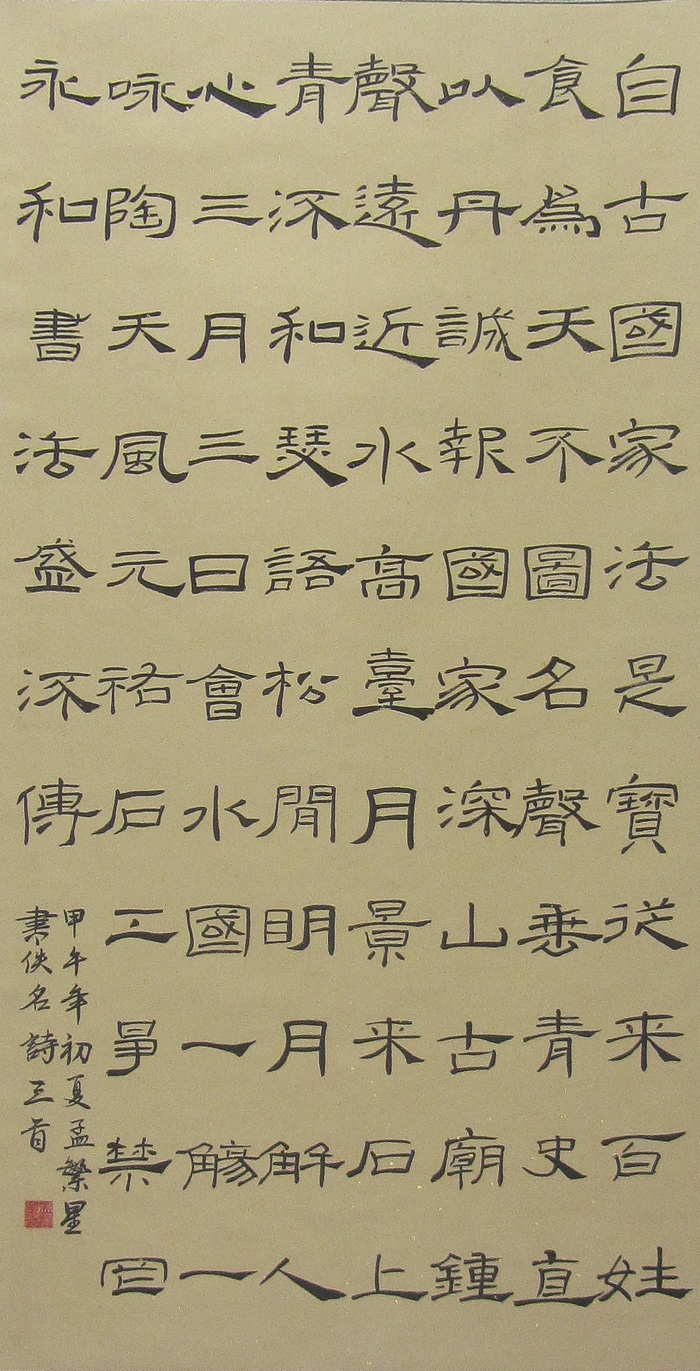 自古國家法是寶從来百姓
食爲天不圖名聲垂青史直
以丹誠報國家深山古廟鍾
聲遠近水高臺月景来石上
青流和瑟語松間明月解人
心三月三日會水國一觴一
咏陶天風元祐石工爭禁
永和書法盛流傳
甲午年初夏孟繁星
書佚名詩三首